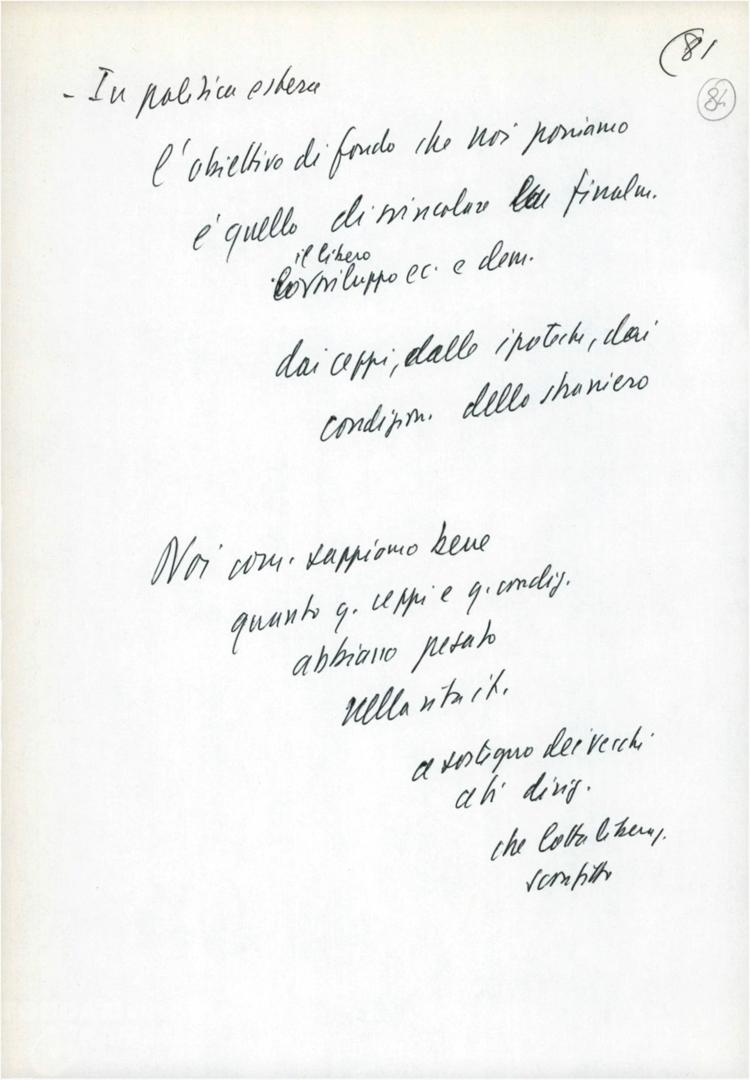 (81
84
- In politica estera
l'obiettivo di fondo che noi poniamo
è quello di svincolare finalm.
il libero
sviluppo ec. e dem.
dai ceppi, dalle ipoteche, dai
condizion. dello straniero
Noi com. sappiamo bene
quanto q. ceppi e q. condiz.
abbiano pesato
nella vita it.
a sostegno dei vecchi
ceti dirig.
che lotta liberaz.
sconfitto